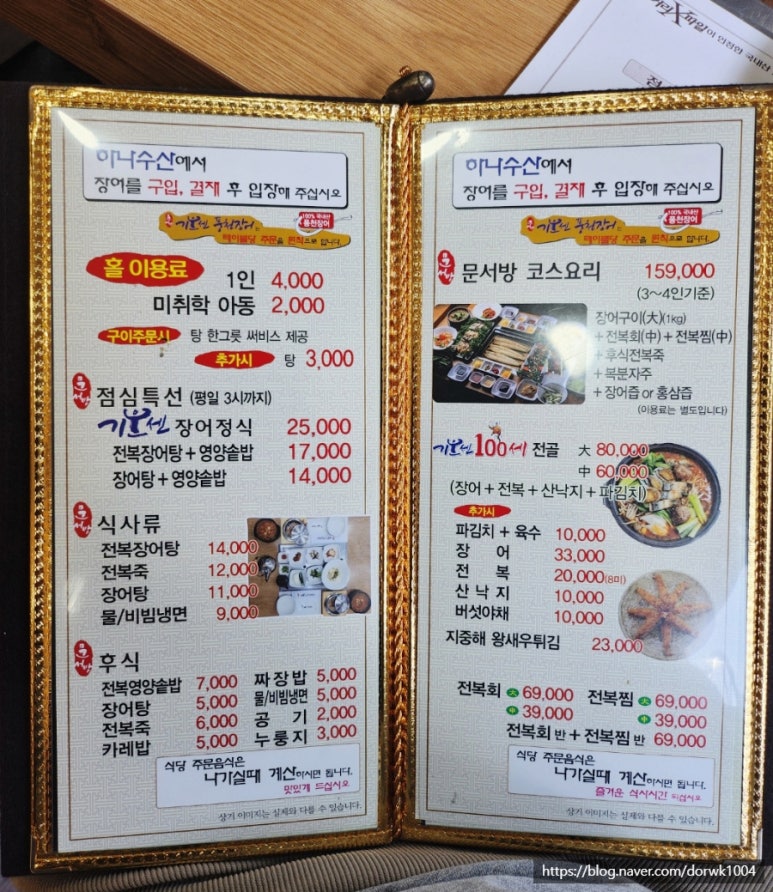 거리X파일이 인정한 국내산
하나수산에서
장어를 구입, 결재 후 입장해 주십시오
기운센 풍천장어는
100% 국내산
풍천장어
테이블당 주문을 원칙으로 합니다.
홀 이용료
1인 4,000
미취학 아동 2,000
구이주문시 탕 한그릇 써비스 제공
추가시 탕 3,000
문서방 점심특선 (평일 3시까지)
기운센 장어정식 25,000
전복장어탕 + 영양솥밥 17,000
장어탕 + 영양솥밥 14,000
문서방 식사류
전복장어탕 14,000
전복죽 12,000
장어탕 11,000
물/비빔냉면 9,000
문서방 후식
전복영양솥밥 7,000
장어탕 5,000
전복죽 6,000
카레밥 5,000
짜장밥 5,000
물/비빔냉면 5,000
공기 2,000
누룽지 3,000
식당 주문음식은
나가실때 계산하시면 됩니다.
맛있게 드십시오
상기 이미지는 실제와 다를 수 있습니다.
하나수산에서
장어를 구입, 결재 후 입장해 주십시오
기운센 풍천장어는
100% 국내산
풍천장어
테이블당 주문을 원칙으로 합니다.
문서방 문서방 코스요리 159,000
(3~4인기준)
장어구이(大)(1kg)
+ 전복회(中) + 전복찜(中)
+ 후식전복죽
+ 복분자주
+ 장어즙 or 홍삼즙
(이용료는 별도입니다)
기운센 100세 전골 大 80,000
中 60,000
(장어 + 전복 + 산낙지 + 파김치)
추가시
파김치 + 육수 10,000
장어 33,000
전복 20,000(8미)
산낙지 10,000
버섯야채 10,000
지중해 왕새우튀김 23,000
전복회 大 69,000 전복찜 大 69,000
中 39,000 中 39,000
전복회 반 + 전복찜 반 69,000
식당 주문음식은
나가실때 계산하시면 됩니다.
즐거운 식사시간 되십시오
상기 이미지는 실제와 다를 수 있습니다.
https://blog.naver.com/dorwk1004